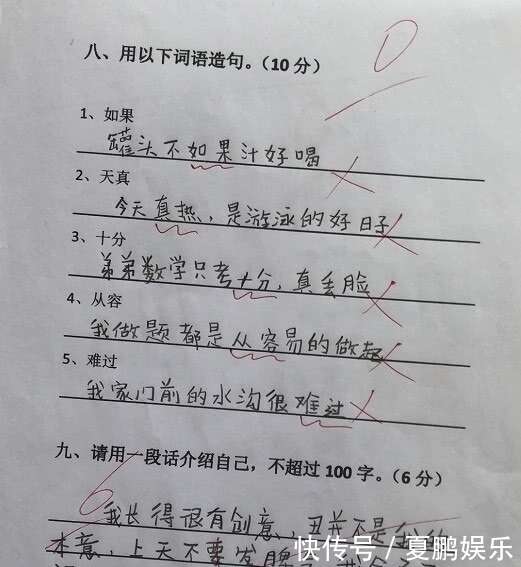 0
八、用以下词语造句。（10 分）
1、如果
罐头不如果汁好喝
2、天真
今天真热，是游泳的好日子
3、十分
弟弟数学只考十分，真丢脸
4、从容
我做题都是从容易的做起
5、难过
我家门前的水沟很难过
九、请用一段话介绍自己，不超过 100 字。（6 分）
6
我长得很有创意，丑并不是我的
本意，上天不要发脾
快传号 / 夏鹏娱乐